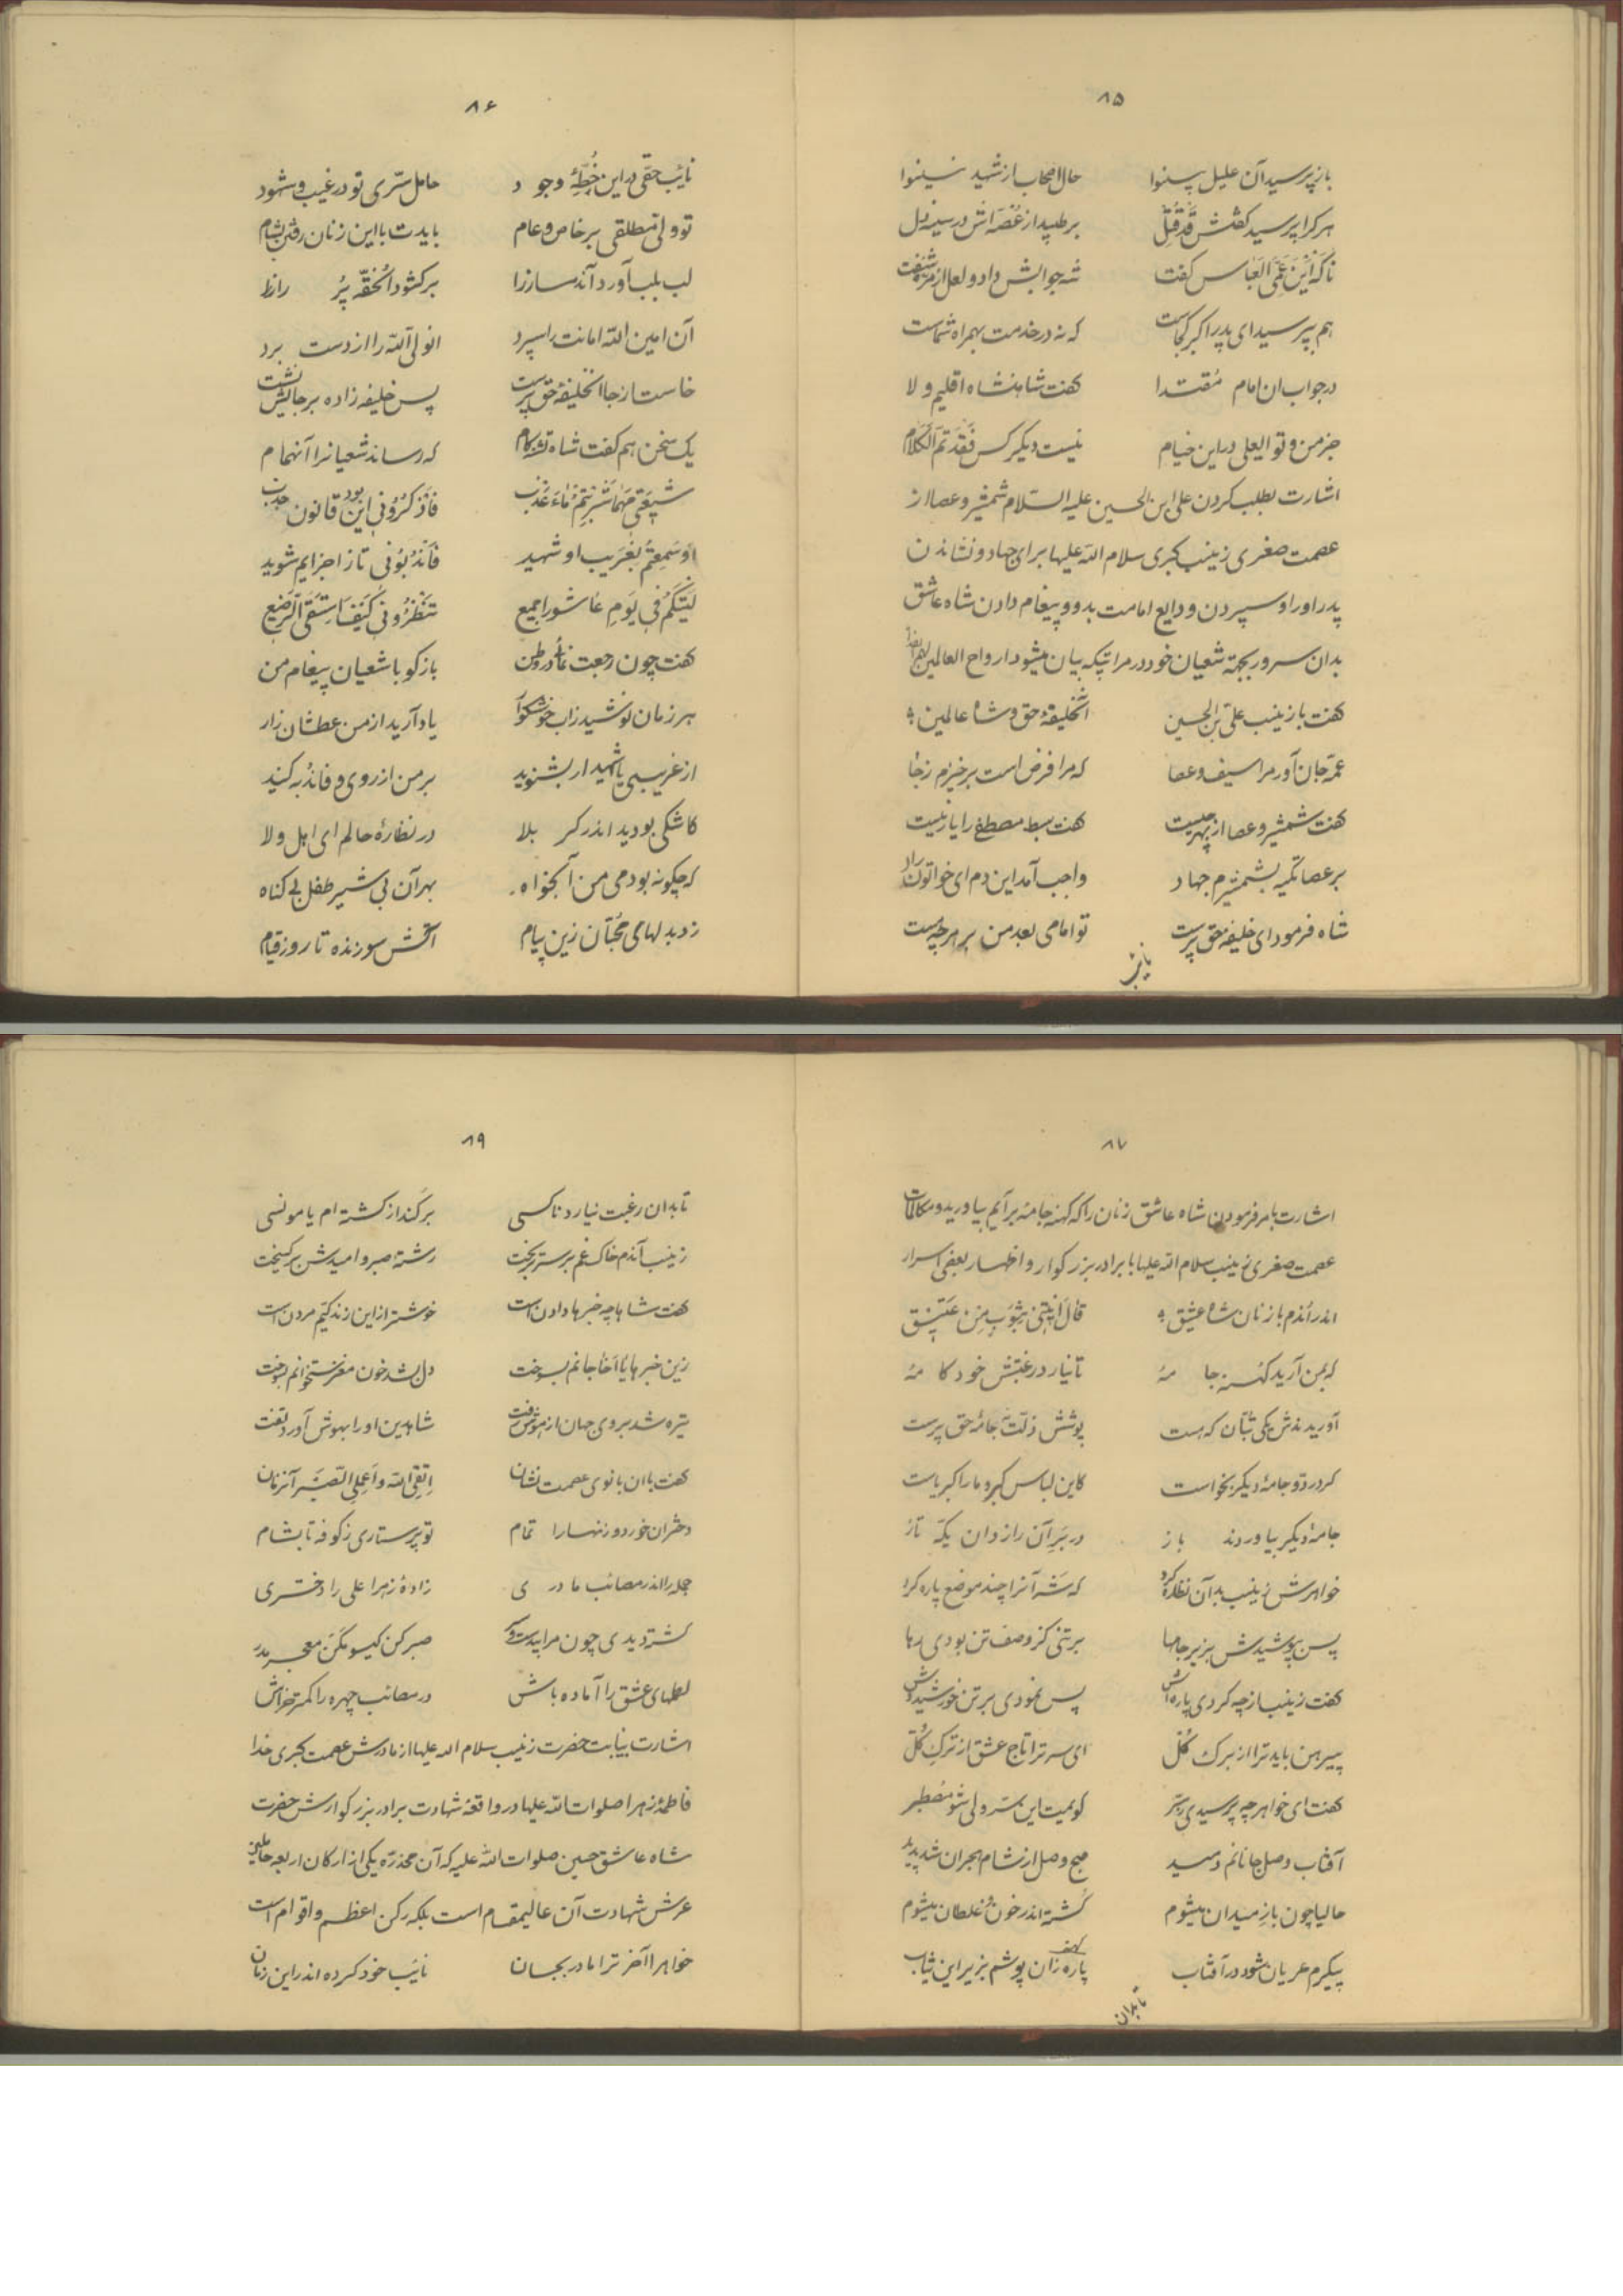 ۸۵
باز پرسید آن علیل بینوا حال اصحاب از شهید نینوا
هر کرا پرسید گفتش قَد قُتِل بر طپید از غُصّه اش در سینه دل
ناگه اَینَ عَمِّیَ العَبّاس گفت شه جوابش داد و لعل از مژه سفت
هم بپرسید ای پدر اکبر کجاست که نه در خدمت بهمراه شماست
در جواب ان امام مُقتدا گفت شاهنشاه اقلیم ولا
جز من و تو ایعلی در این خیام نیست دیگر کس فَقَد تَمَّ الکَلام
اشارت بطلب کردن علی ابن الحسین علیه السلام شمشیر و عصا از
عصمت صغری زینب کبری سلام الله علیها برای جهاد و نشاندن
پدر او را و سپردن ودایع امامت بدو و پیغام دادن شاه عاشق
بدان سرور بجهة شعیان خود در مراتبیکه بیان میشود ارواح العالمین لهم الفدا
گفت با زینب علیّ بن الحسین آنخلیفۀ حق و شاه عالمین
عمّه جان آور مرا سیف و عصا که مرا فرض است برخیزم ز جا
گفت شمشیر و عصا از بهر چیست گفت سبط مصطفی را یار نیست
بر عصا تکیه بشمشیرم جهاد واجب آمد این دم ای خواتون راد
شاه فرمود ای خلیفه حق پرست تو امامی بعد من بر هر چه هست
نایب
۸۶
نائب حقی در این خُطّۀ وجود حامل سرّی تو در غیب و شهود
تو ولیّ مطلقی بر خاص و عام بایدت با این زنان رفتن بشام
لب بلب آورد آندمساز را برگشود آنحُقّۀ پُر راز را
آن امین الله امانت را سپرد انولیّ الله را از دست برد
خاست از جا آنخلیفۀ حق پرست پس خلیفه زاده بر جایش نشست
یک سخن هم گفت شاه تشنه کام که رساند شعیانرا آنهمام
شیعَتی مَهما شَرِبتُم ماءَ عَذب فَاذکُرُونی این بود قانون جذب
اَو سَمِعتُم بِغَریب او شهید فَاندُبُونی تا ز احزابم شوید
لَیتَکُم فی یَومِ عاشورا جمیع تَنظُرُونی کَیفَ اَستَسقِی الرَّضیع
گفت چون رجعت نمائی در وطن بازگو با شعیان پیغام من
هر زمان نوشید زاب خوشگوار یاد آرید از من عطشان زار
از غریبی یا شهید ار بشنوید بر من از روی وفا ندبه کنید
کاشکی بودید اندر کربلا در نظارۀ حالم ای اهل ولا
که چگونه بودمی من آبخواه بهر آن بی شیر طفل بی گناه
زد بدلهای محبّان زین پیام آتش سوزنده تا روز قیام
۸۷
اشارت بامر فرمودن شاه عاشق زنان را که کهنه جامۀ برایم بیاورید و مکالمات
عصمت صغری زینب سلام الله علیها با برادر بزرگوار و اظهار بعضی اسرار
اندر آندم با زنان شاه عشیق قال ایتینی بِثَوبٍ مِن عَتیق
که بمن آرید کهنه جامۀ تا نیارد رغبتش خودکامۀ
آوریدندش یکی تُبّان که هست پوشش ذلّت بجامۀ حق پرست
کرد رد و جامۀ دیگر بخواست کاین لباس گبر و ما را کبریاست
جامۀ دیگر بیاوردند باز در برِ آن رازدان یکّه تاز
خواهرش زینب بدآن نظاره کرد که شه آنرا چند موضع پاره کرد
پس بپوشیدش بزیر جامها بر تنی کز وصف تن بودی رها
گفت زینب از چه کردی پاره اش پس نمودی بر تن خورشیدوش
پیرهن باید ترا از برگ گُل ای سرت را تاج عشق از ترک کُل
گفت ای خواهر چه پرسیدی ز سرّ گویمت این سرّ ولی شو مصطبر
آفتاب وصل جانانم دمید صبح وصل از شام هجران شد پدید
حالیا چون باز میدان میشوم کُشته اندر خون و غلطان میشوم
پیکرم عریان شود در آفتاب پاره زان پوشم بزیر این ثیاب
کهنه
تا بدان
۸۹
تا بدان رغبت نیارد ناکسی برکند از کشته ام یا مونسی
زینب آندم خاک غم بر سر بریخت رشتۀ صبر و امیدش برگسیخت
گفت شاها چه خبرها دادن است خوشتر از این زندگیّم مردن است
زین خبرها یا اَخا جانم بسوخت دل بشد خون مغز ستخوانم بسوخت
تیره شد بروی جهان از هوش رفت شاه دین او را بهوش آورد تفت
گفت با ان بانوی عصمت نشان اِتَّقی الله واَعِلِی الصّبر آنزمان
دختران خورد و زنها را تمام تو پرستاری ز کوفه تا بشام
جمله را اندر مصائب مادری زادۀ زهرا علی را دختری
کشته دیدی چون مرا صبر کن گیسو مکن معجر مدر
لطمهای عشق را آماده باش در مصائب چهره را کمتر خراش
اشارت بنیابت حضرت زینب سلام الله علیها از مادرش عصمت کبری خدا
فاطمۀ زهرا صلوات الله علیها در واقعۀ شهادت برادر بزرگوارش حضرت
شاه عاشق حسین صلوات الله علیه که آن مخدّره یکی از ارکان اربعه حاملین
عرش شهادت آن عالیمقام است بلکه رکن اعظم و اقوام است
خواهرا آخر ترا مادر بجان نائب خود کرده اندر این زمان